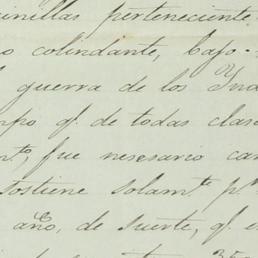 inillas perteneciente
o colindante, bajo
guerra de los Ind
mpo q.e de todas clas
m.to, fue nesesario can
sostiene solam.te p.r
año, de suerte, q.e e